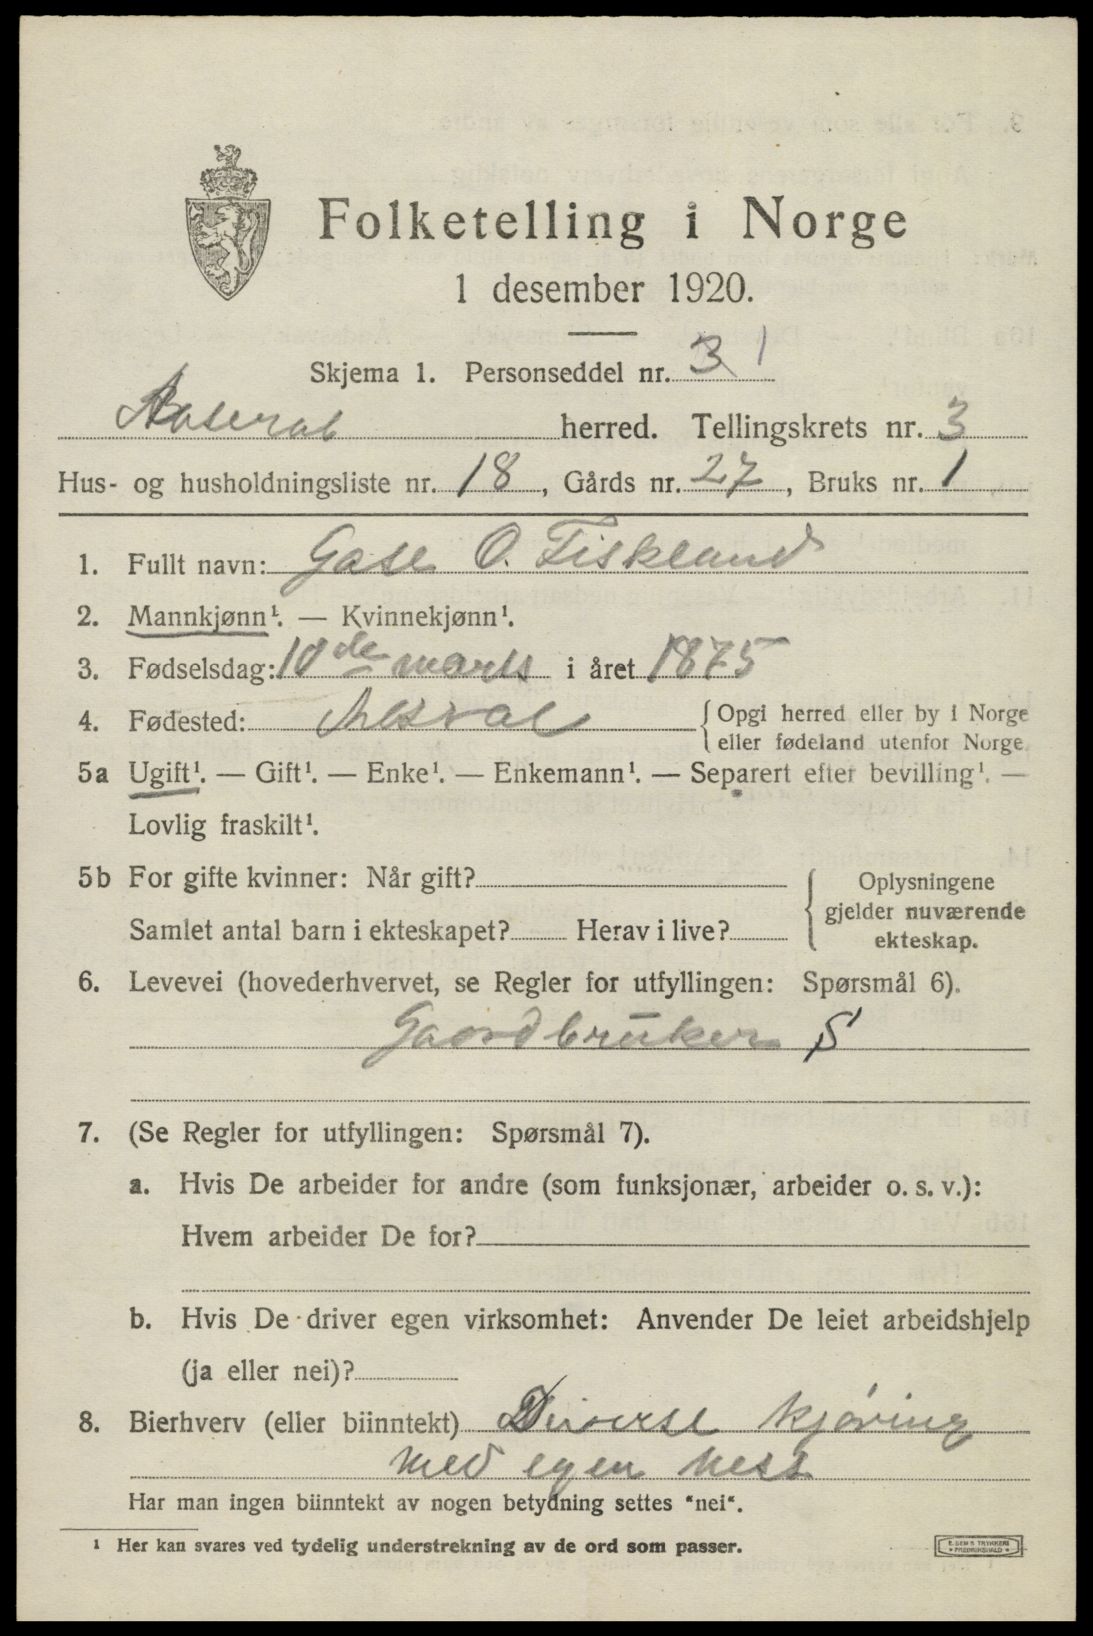 Folketelling i Norge
1 desember 1920.
Skjema 1. Personseddel nr. 3 1
Aaseral herred. Tellingskrets nr. 3
Hus- og husholdningsliste nr. 18, Gårds nr. 27, Bruks nr. 1
1. Fullt navn: Gase O. Fiskland
2. Mannkjønn¹. — Kvinnekjønn¹.
3. Fødselsdag: 10de marts i året 1875
4. Fødested: {Opgi herred eller by i Norge
eller fødeland utenfor Norge
5a Ugift¹. — Gift¹. — Enke¹. — Enkemann¹. — Separert efter bevilling¹. —
Lovlig fraskilt¹.
5b For gifte kvinner: Når gift? { Oplysningene
gjelder nuværende
Samlet antal barn i ekteskapet? Herav i live? ekteskap.
6. Levevei (hovederhvervet, se Regler for utfyllingen: Spørsmål 6).
Gaardbruker S
7. (Se Regler for utfyllingen: Spørsmål 7).
a. Hvis De arbeider for andre (som funksjonær, arbeider o. s. v.):
Hvem arbeider De for?
b. Hvis De driver egen virksomhet: Anvender De leiet arbeidshjelp
(ja eller nei)?
8. Bierhverv (eller biinntekt) Diverse kjøring
med egen hest
Har man ingen biinntekt av nogen betydning settes "nei".
¹ Her kan svares ved tydelig understrekning av de ord som passer.
E. SEM'S TRYKKERI
FREDRIKSHALD